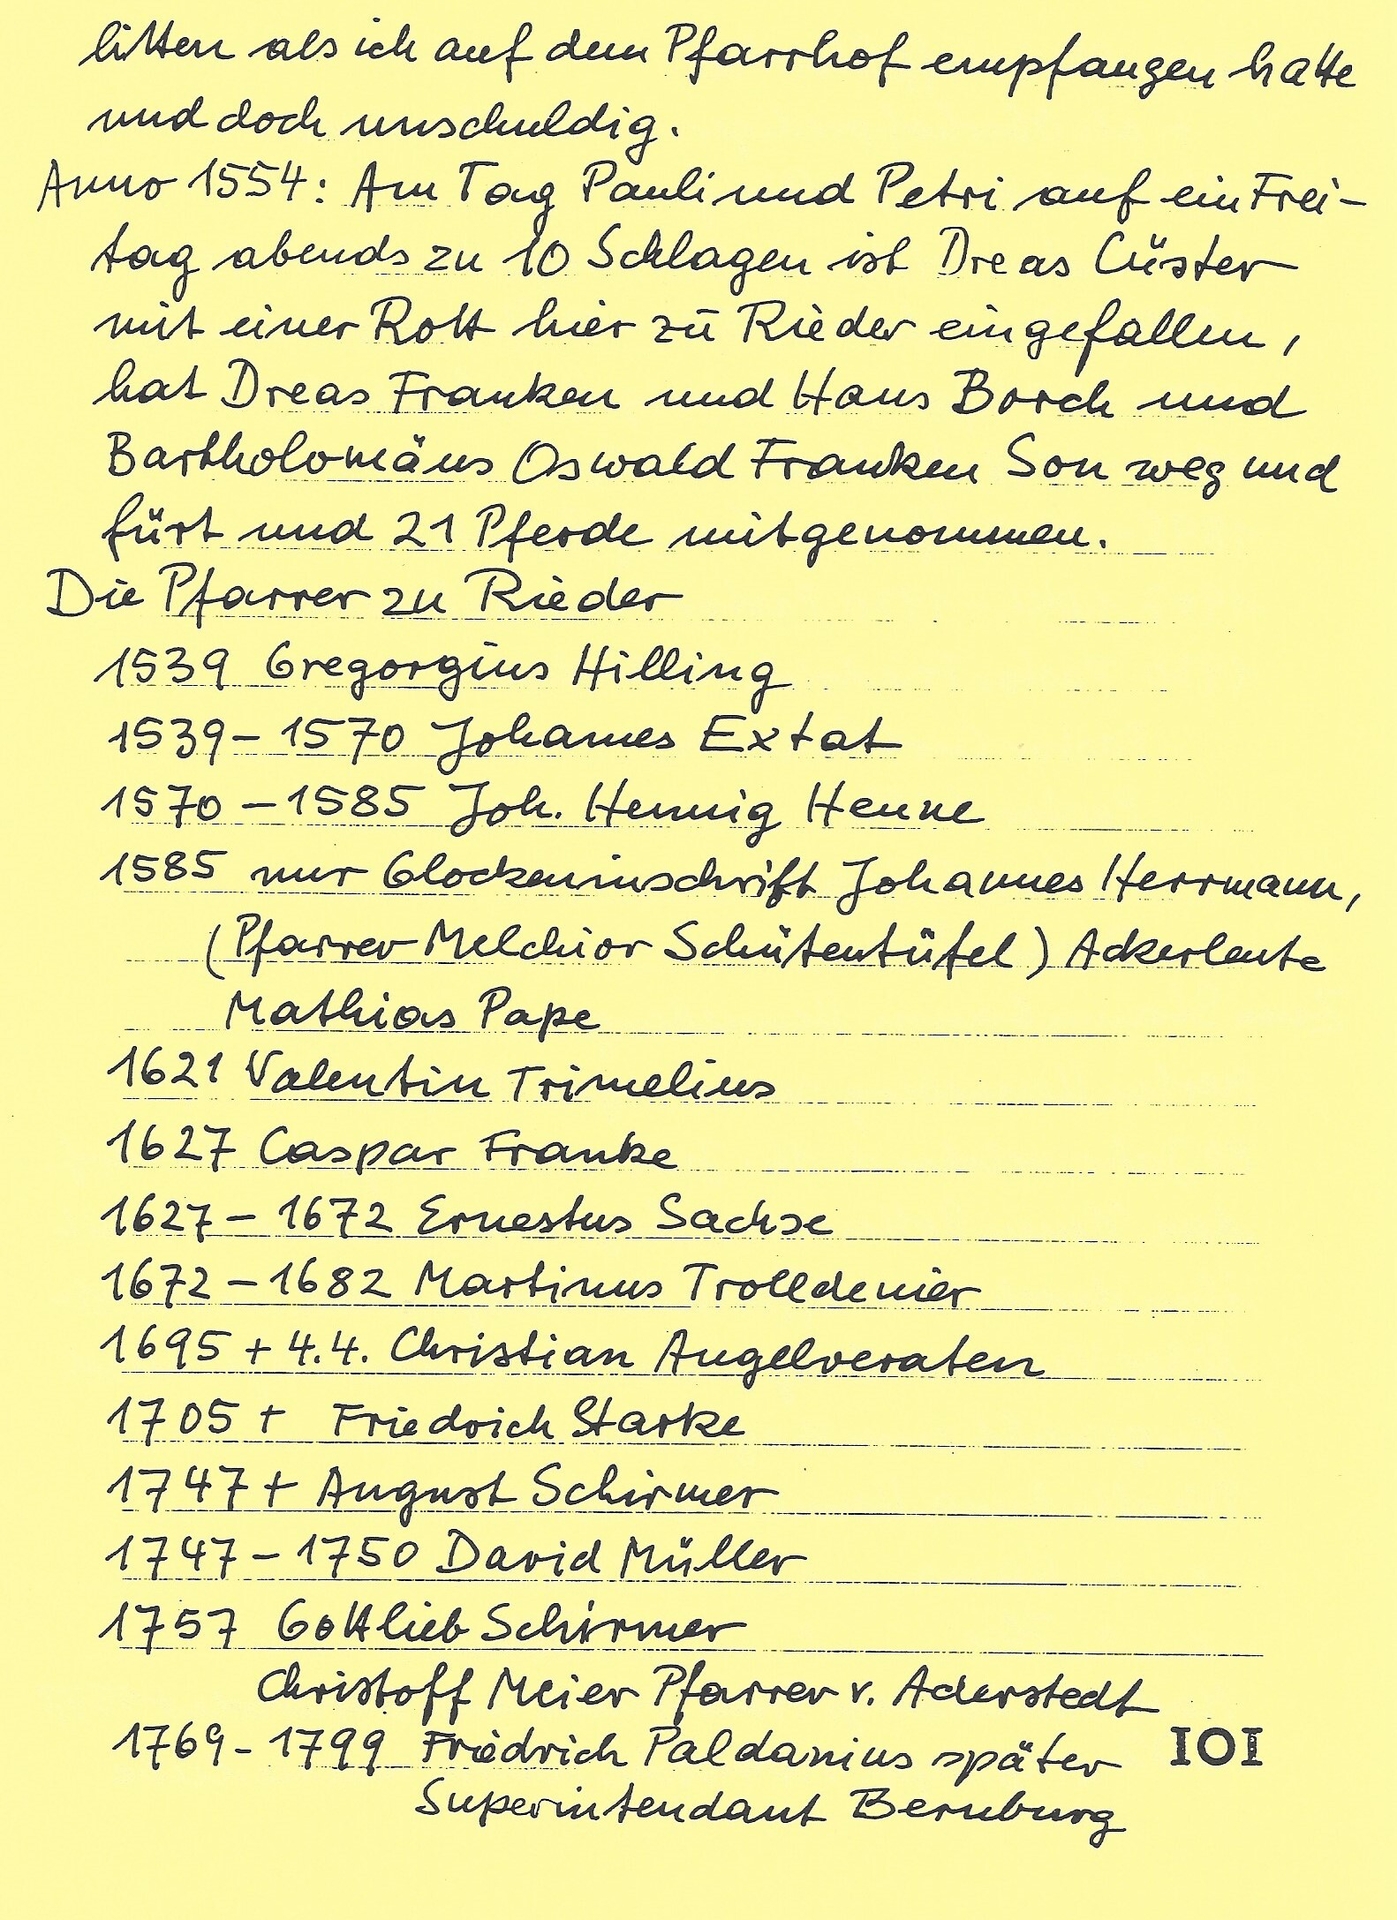 litten als ich auf dem Pfarrhof empfangen hatte
und doch unschuldig.
Anno 1554: Am Tag Pauli und Petri auf ein Frei-
tag abends zu 10 Schlagen ist Dreas Cüster
mit einer Rott hier zu Rieder eingefallen,
hat Dreas Franken und Hans Borch und
Bartholomäus Oswald Franken Son weg und
fürt und 21 Pferde mitgenommen.
Die Pfarrer zu Rieder
1539 Gregorgius Hilling
1539 - 1570 Johannes Extat
1570 - 1585 Joh. Hennig Henne
1585 nur Glockeninschrift Johannes Herrmann,
(Pfarrer Melchior Schütentüfel) Ackerleute
Mathias Pape
1621 Valentin Trimelius
1627 Caspar Franke
1627 - 1672 Ernestus Sachse
1672 - 1682 Martinus Trolldenier
1695 + 4.4. Christian Angelveraten
1705 + Friedrich Starke
1747 + August Schirmer
1747 - 1750 David Müller
1757 Gottlieb Schirmer
Christoff Meier Pfarrer v. Aderstedt
1769 - 1799 Friedrich Paldanius später 101
Superintendant Bernburg